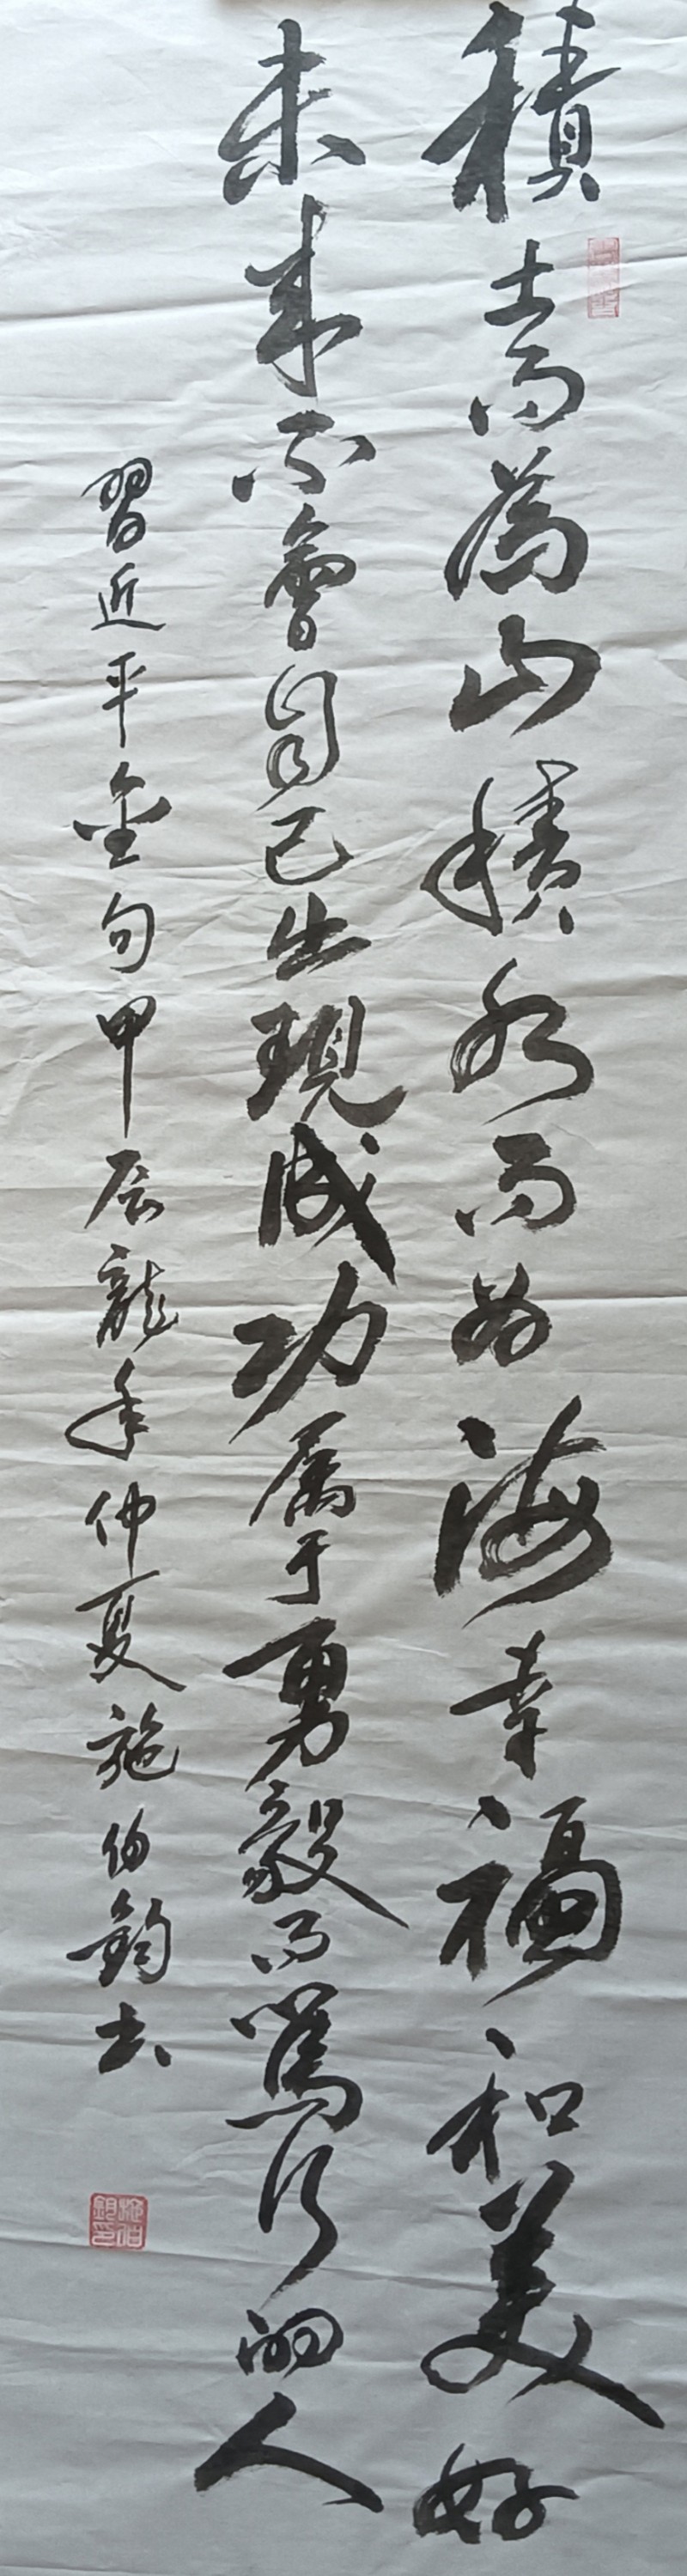 積土而為山積水而為海幸福和美好
未来不會自己出現成功属于勇毅而篤行的人
習近平金句甲辰龍年仲夏施伯鈞书
施伯鈞印